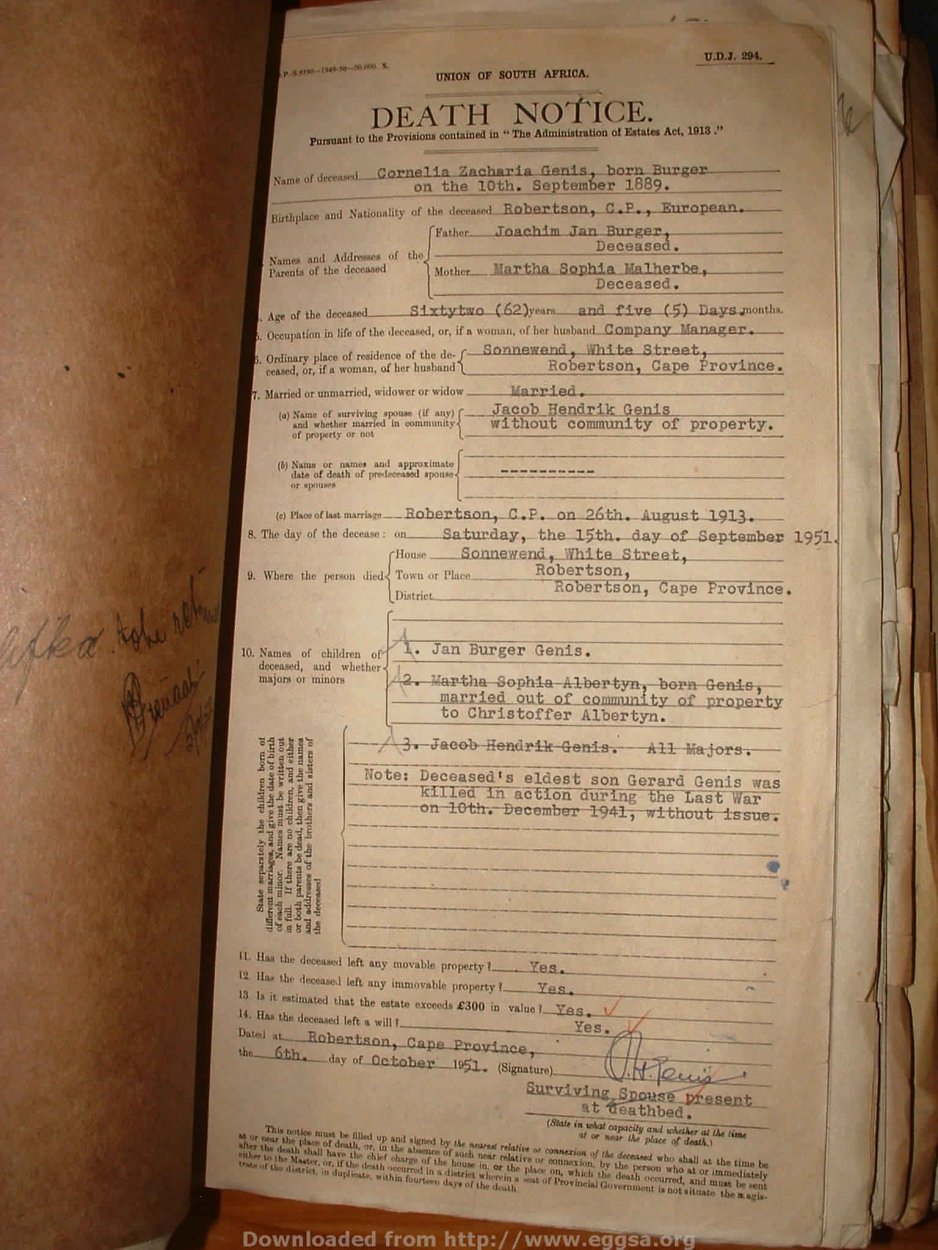 U.D.J. 294.
UNION OF SOUTH AFRICA.
DEATH NOTICE.
Pursuant to the Provisions contained in "The Administration of Estates Act, 1913."
Name of deceased Cornelia Zacharia Genis, born Burger
on the 10th. September 1889.
Birthplace and Nationality of the deceased Robertson, C.P., European.
Names and Addresses of the Parents of the deceased
Father Joachim Jan Burger,
Deceased.
Mother Martha Sophia Malherbe,
Deceased.
Age of the deceased Sixtytwo (62) years and five (5) Days months.
Occupation in life of the deceased, or, if a woman, of her husband Company Manager.
Ordinary place of residence of the de- Sonnewend, White Street,
ceased, or, if a woman, of her husband Robertson, Cape Province.
7. Married or unmarried, widower or widow Married.
(a) Name of surviving spouse (if any) Jacob Hendrik Genis
and whether married in community without community of property.
of property or not
(b) Name or names and approximate
date of death of predeceased spouse ----------
or spouses
(c) Place of last marriage Robertson, C.P. on 26th. August 1913.
8. The day of the decease: on Saturday, the 15th. day of September 1951.
9. Where the person died
House Sonnewend, White Street,
Town or Place Robertson,
District Robertson, Cape Province.
10. Names of children of 1. Jan Burger Genis.
deceased, and whether
majors or minors 2. Martha Sophia Albertyn, born Genis,
married out of community of property
to Christoffer Albertyn.
3. Jacob Hendrik Genis. All Majors.
Note: Deceased's eldest son Gerard Genis was
killed in action during the Last War
on 10th. December 1941, without issue.
State separately the children born of
different marriages, and give the date of birth
of each minor. Names must be written out
in full. If there are no children, and either
or both parents be dead, then give the names
and addresses of the brothers and sisters of
the deceased
11. Has the deceased left any movable property? Yes.
12. Has the deceased left any immovable property? Yes.
13. Is it estimated that the estate exceeds £300 in value? Yes.
14. Has the deceased left a will? Yes.
Dated at Robertson, Cape Province,
the 6th. day of October 1951. (Signature) J.H. Genis
Surviving Spouse present
at deathbed.
(State in what capacity and whether at the time
at or near the place of death.)
This notice must be filled up and signed by the nearest relative or connexion of the deceased who shall at the time be
at or near the place of death, or, in the absence of such near relative or connexion, by the person who at or immediately
after the death shall have the chief charge of the house in, or the place on, which the death occurred, and must be sent
either to the Master, or, if the death occurred in a district wherein a seat of Provincial Government is not situate the magis-
trate of the district, in duplicate, within fourteen days of the death.
Downloaded from http://www.eggsa.org